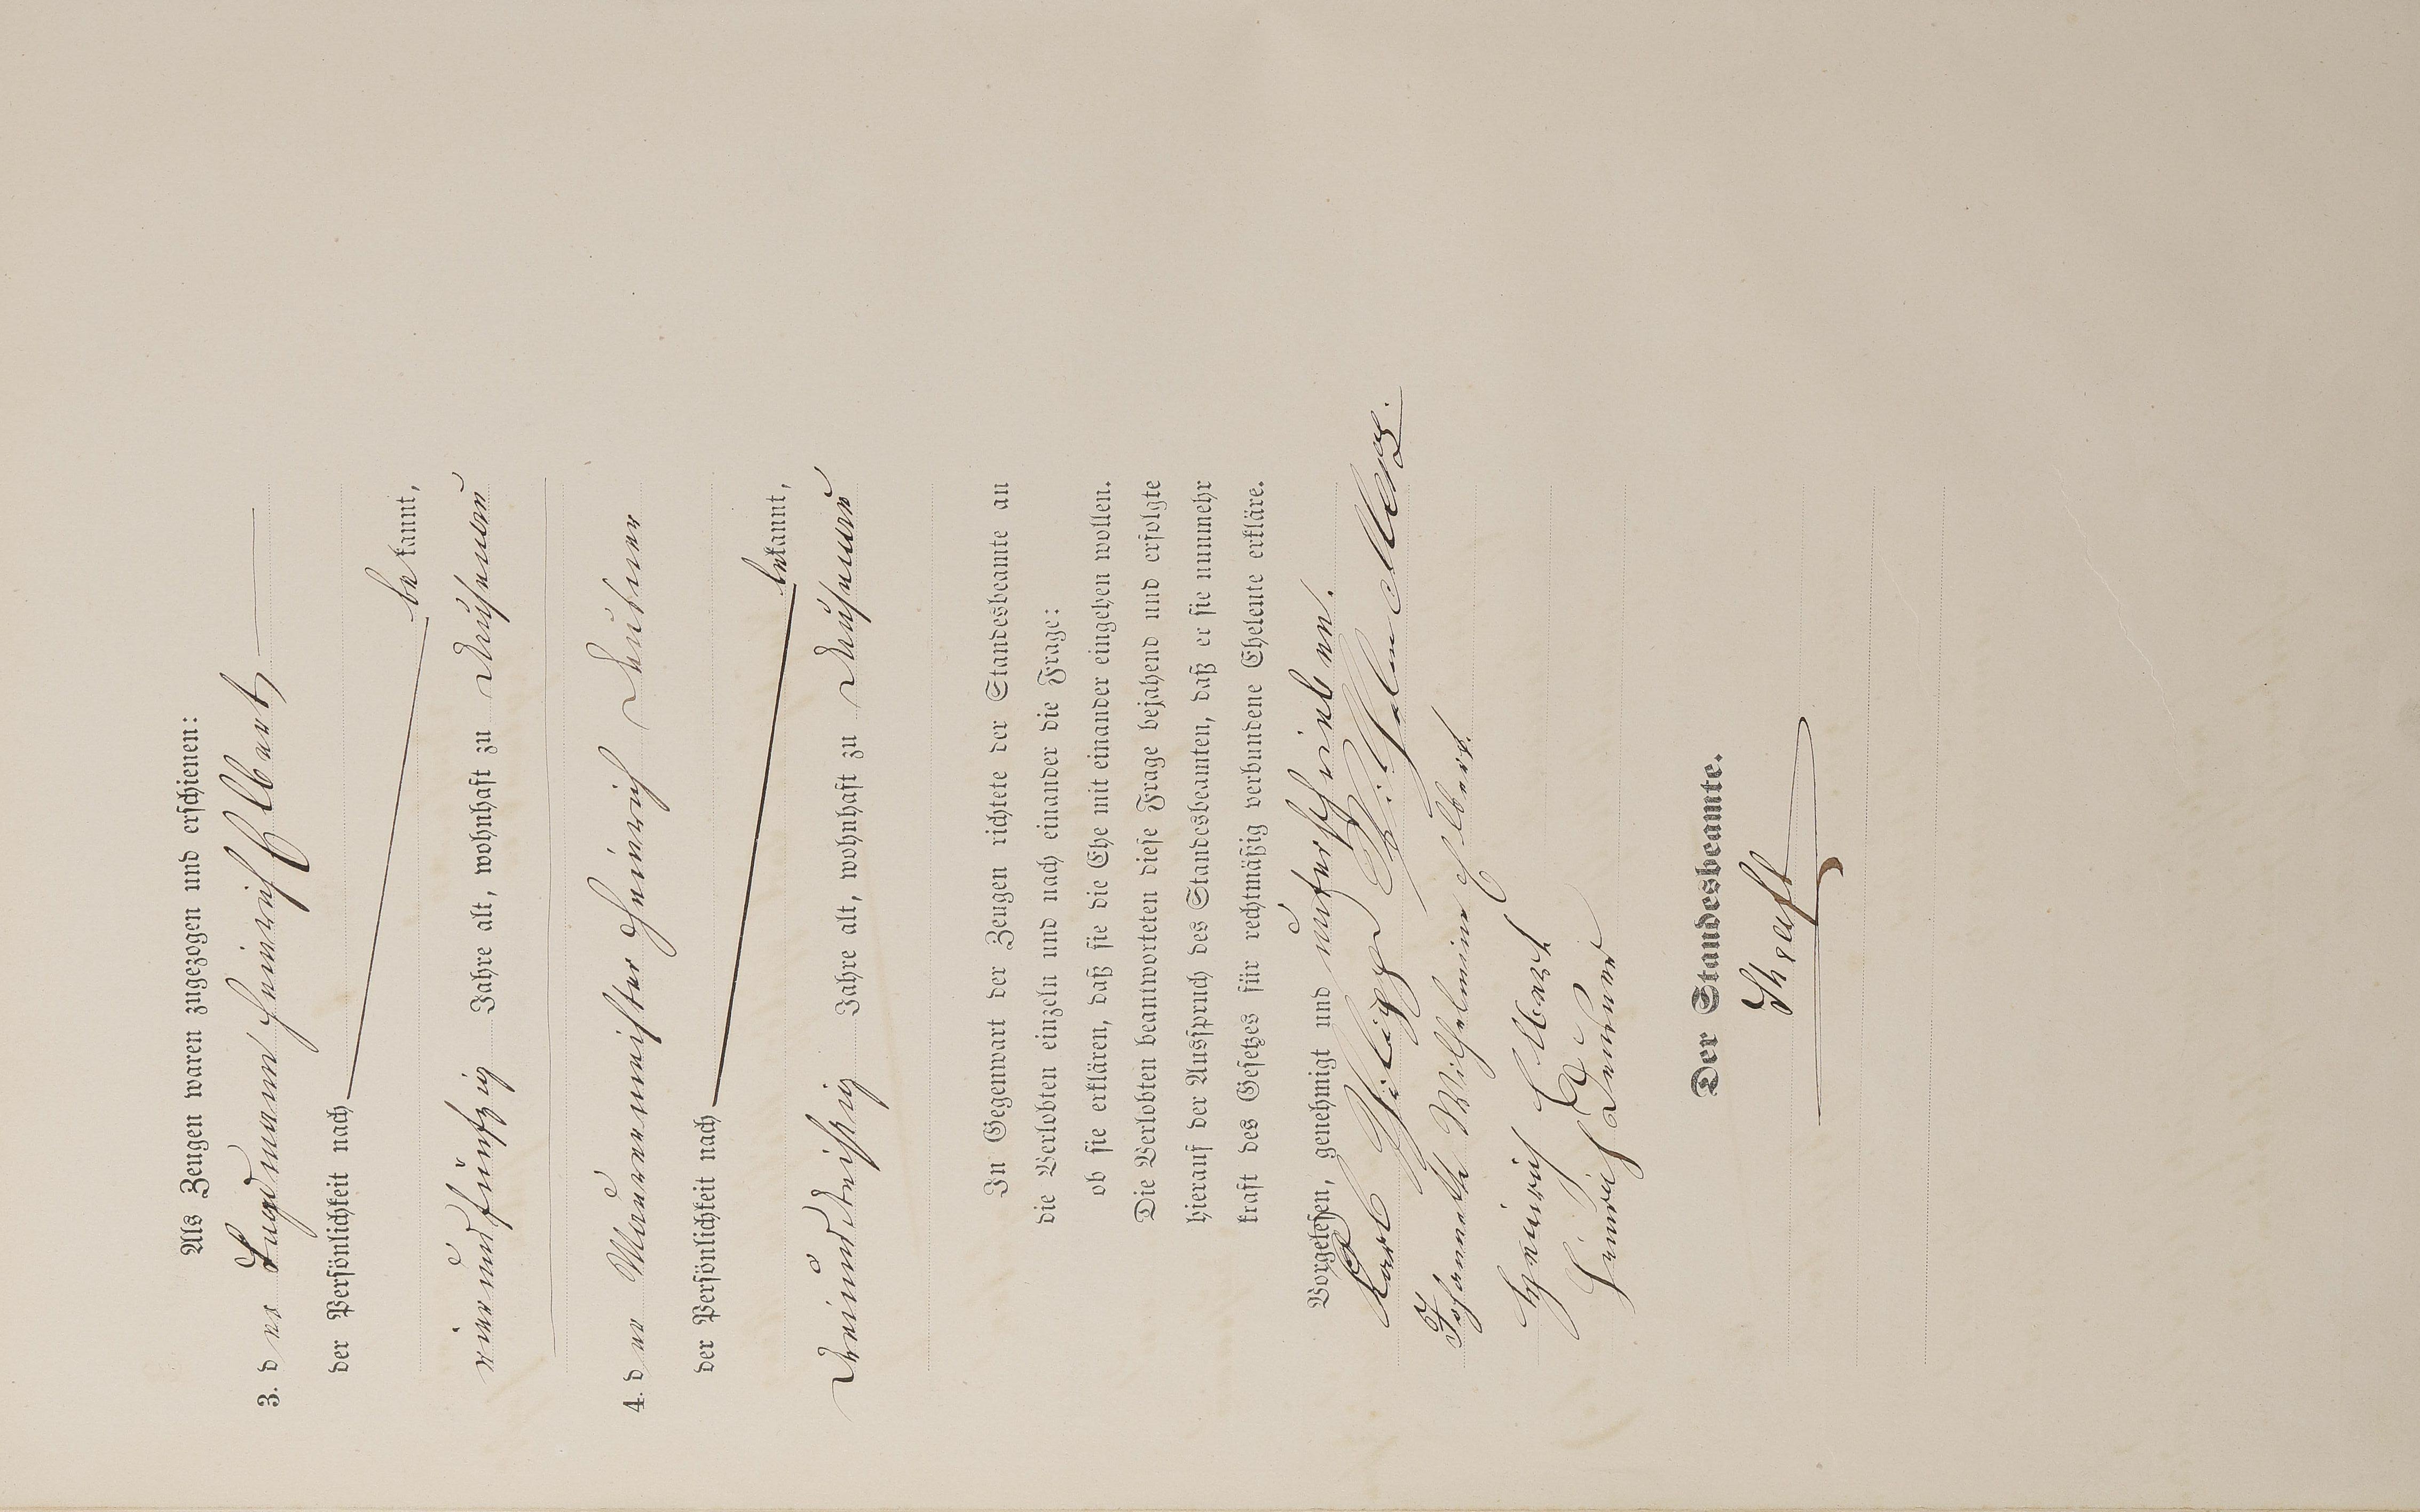 Als Zeugen waren zugezogen und erschienen:
3. der Heinrich Elbert
der Persönlichkeit nach
bekannt,
vierundfünfzig Jahre alt, wohnhaft zu
4. der Maurermeister Heinrich
der Persönlichkeit nach
bekannt,
dreiunddreißig Jahre alt, wohnhaft zu
In Gegenwart der Zeugen richtete der Standesbeamte an
die Verlobten einzeln und nach einander die Frage:
ob sie erklären, daß sie die Ehe mit einander eingehen wollen.
Die Verlobten beantworteten diese Frage bejahend und erfolgte
hierauf der Ausspruch des Standesbeamten, daß er sie nunmehr
kraft des Gesetzes für rechtmäßig verbundene Eheleute erkläre.
Vorgelesen, genehmigt und unterschrieben.
Karl Philipp Wilhelm Merz.
Johannette Wilhelmine Elbert.
Heinrich Elbert
Heinrich
Der Standesbeamte.